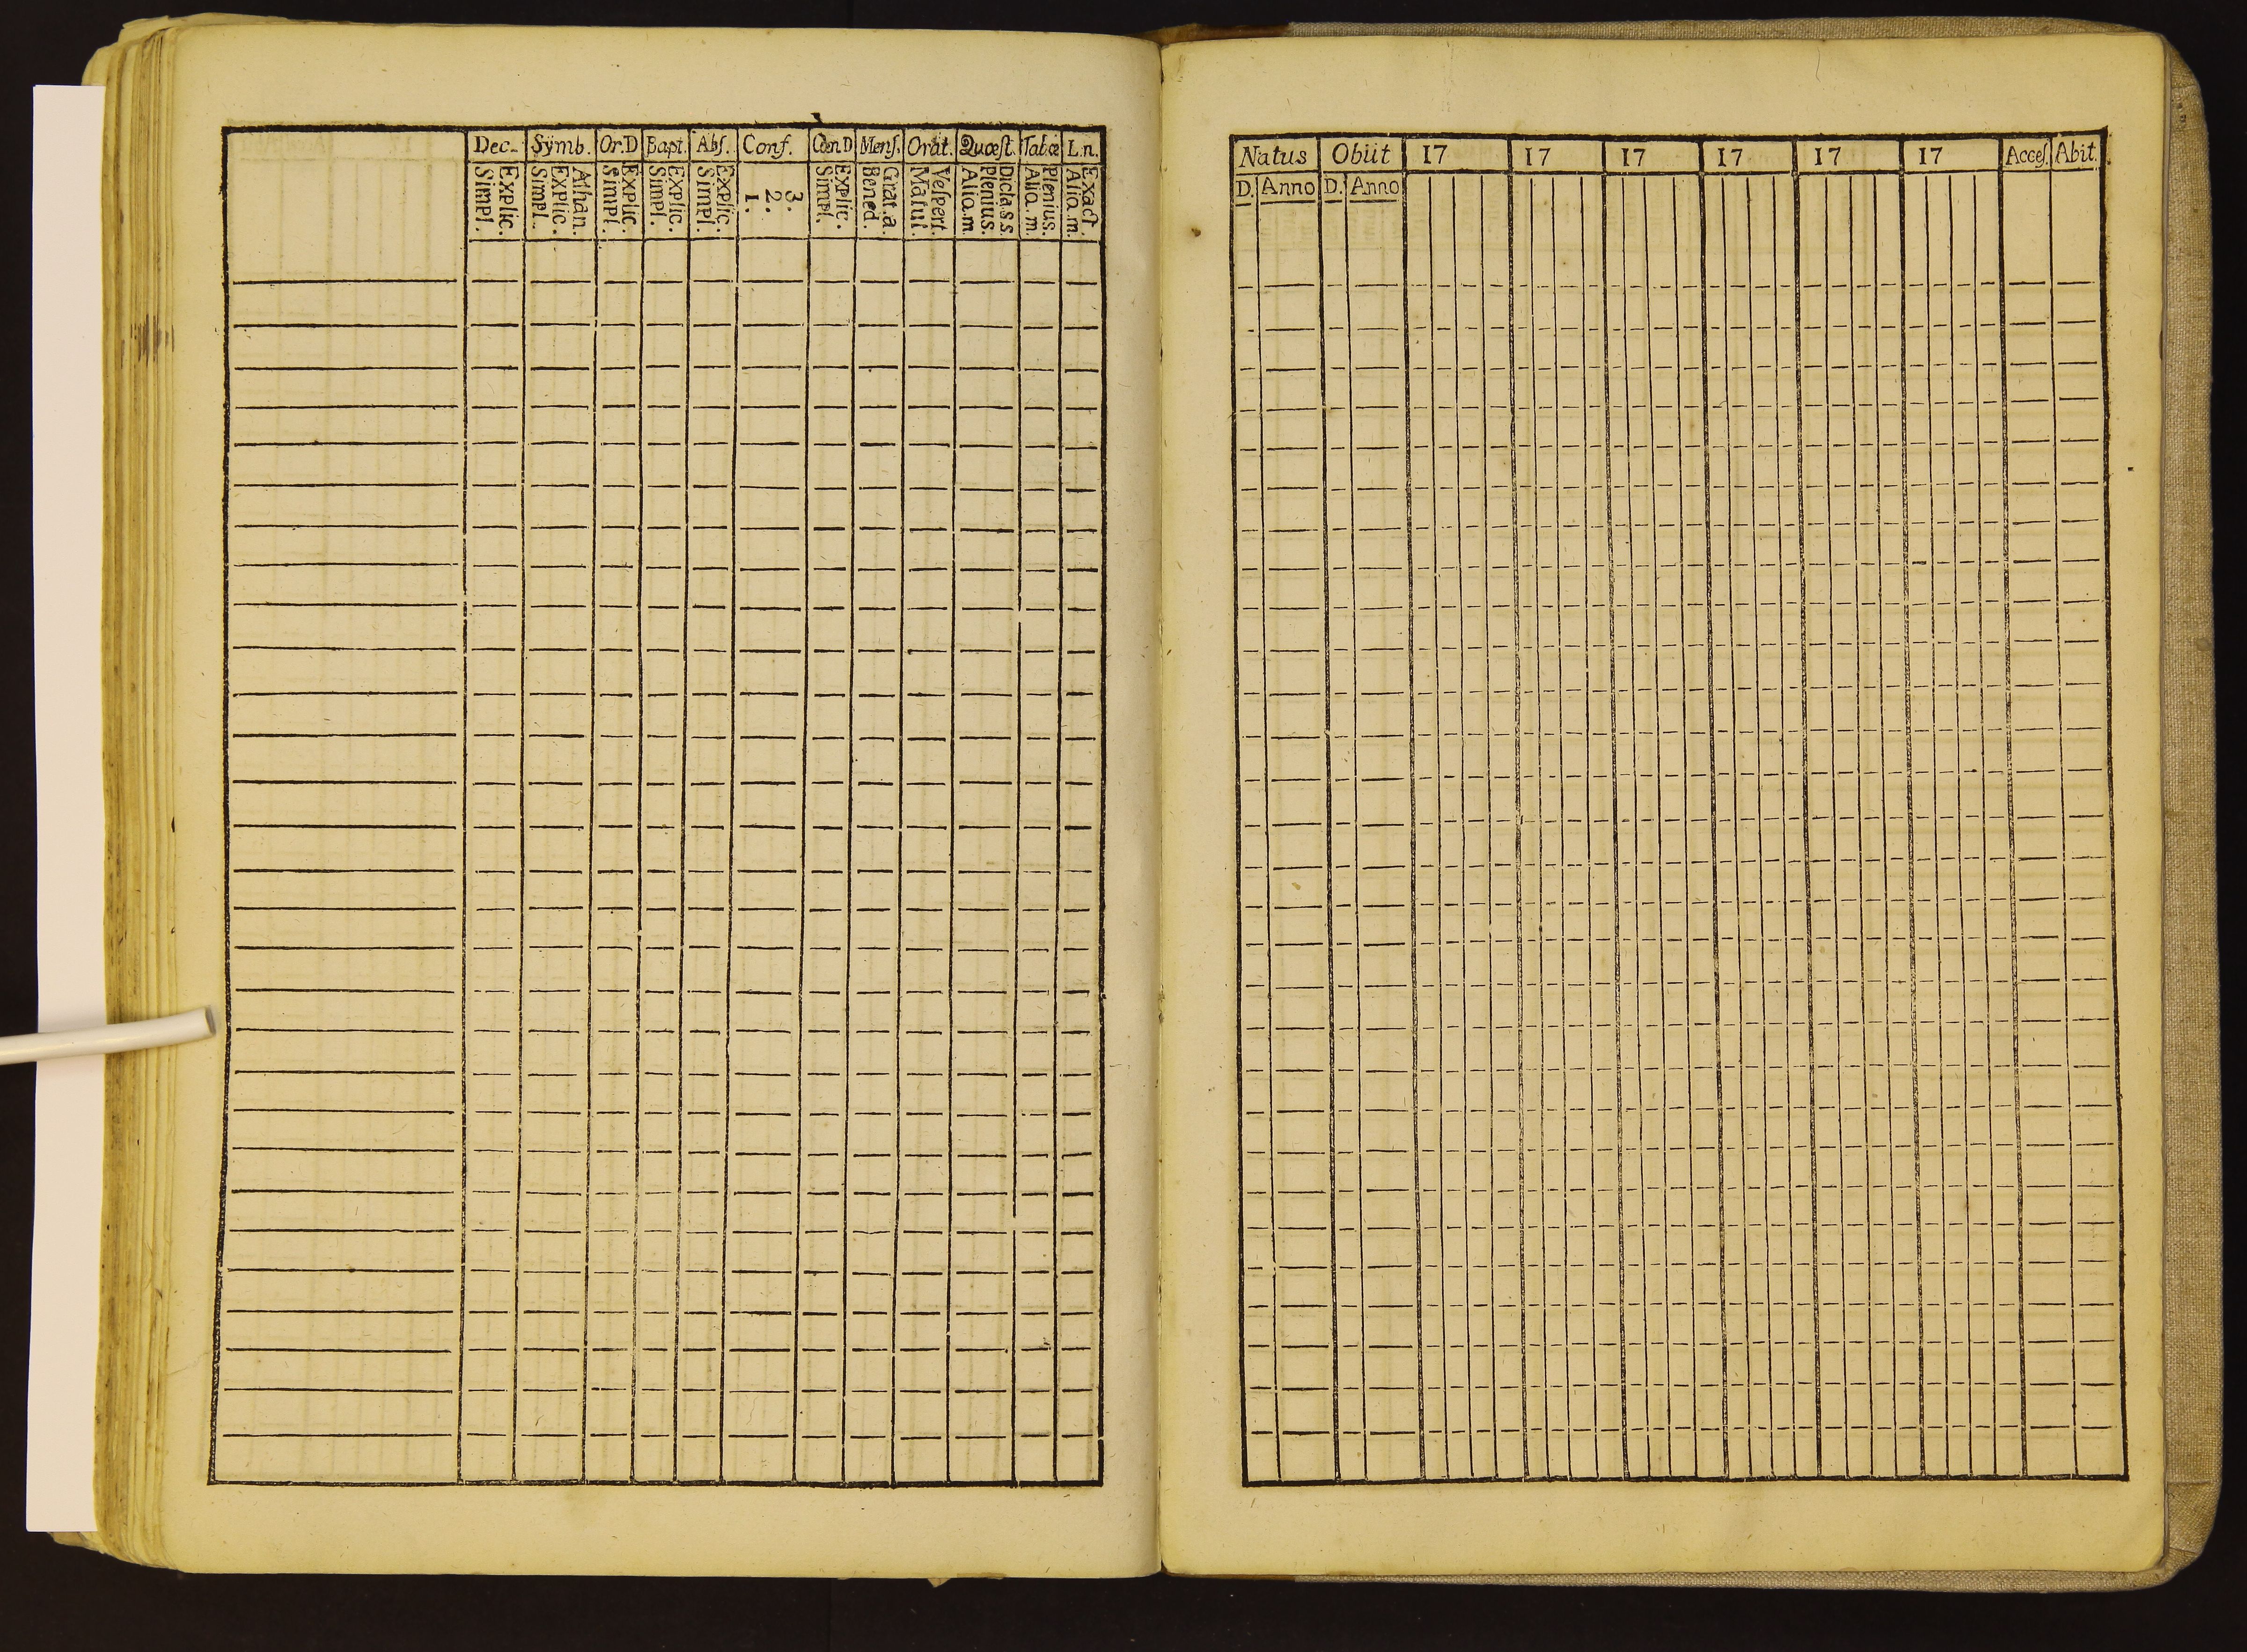 Dec. Sÿmb. Or.D Bapt. Abſ. Conf. Cœn D Menſ. Orat. Quœſt. Tab.œ L.n.
Explic. Simpl.
Athan. Explic. Simpl.
Explic. Simpl.
Explic. Simpl.
Explic. Simpl.
3. 2. 1.
Explic. Simpl.
Grat.a. Bened.
Veſpert. Matut.
Dicta s s. Plenius. Alio.m.
Plenius. Alio.m.
Exact. Alio.m.
Natus Obiit 17 17 17 17 17 17 Acceſ. Abit.
D. Anno D. Anno